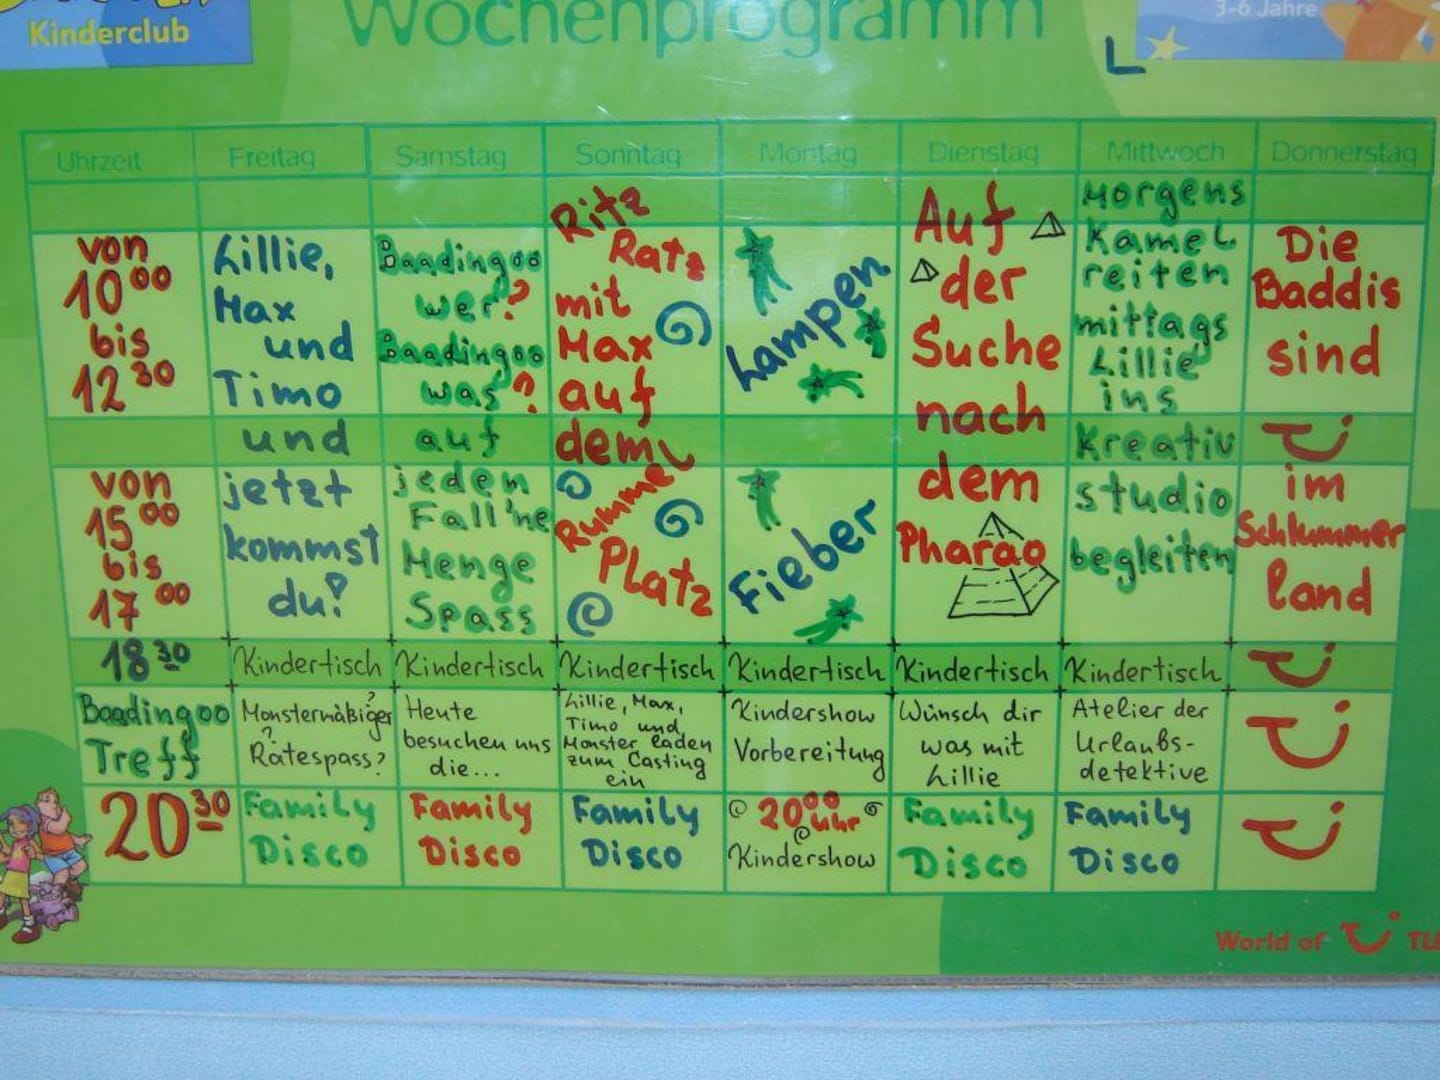 Kinderclub
Wochenprogramm
3-6 Jahre
L
Uhrzeit
Freitag
Samstag
Sonntag
Montag
Dienstag
Mittwoch
Donnerstag
von
10 00
bis
12 30
von
15 00
bis
17 00
Lillie,
Max
und
Timo
und
jetzt
kommst
du!
Baadingoo
wer?
Baadingoo
was?
auf
jeden
Fall 'ne
Menge
Spass
Ritz
Ratz
mit
Max
auf
dem
Rummel
Platz
Lampen
Fieber
Auf
der
Suche
nach
dem
Pharao
Morgens
Kamel
reiten
mittags
Lillie
ins
Kreativ
studio
begleiten
Die
Baddis
sind
im
Schlummer
land
18 30
Kindertisch
Kindertisch
Kindertisch
Kindertisch
Kindertisch
Kindertisch
Baadingoo
Treff
Monstermäßiger
Ratespass?
Heute
besuchen uns
die...
Lillie, Max,
Timo und
Monster laden
zum Casting
ein
Kindershow
Vorbereitung
Wünsch dir
was mit
Lillie
Atelier der
Urlaubs-
detektive
20 30
Family
Disco
Family
Disco
Family
Disco
20 00 Uhr
Kindershow
Family
Disco
Family
Disco
World of